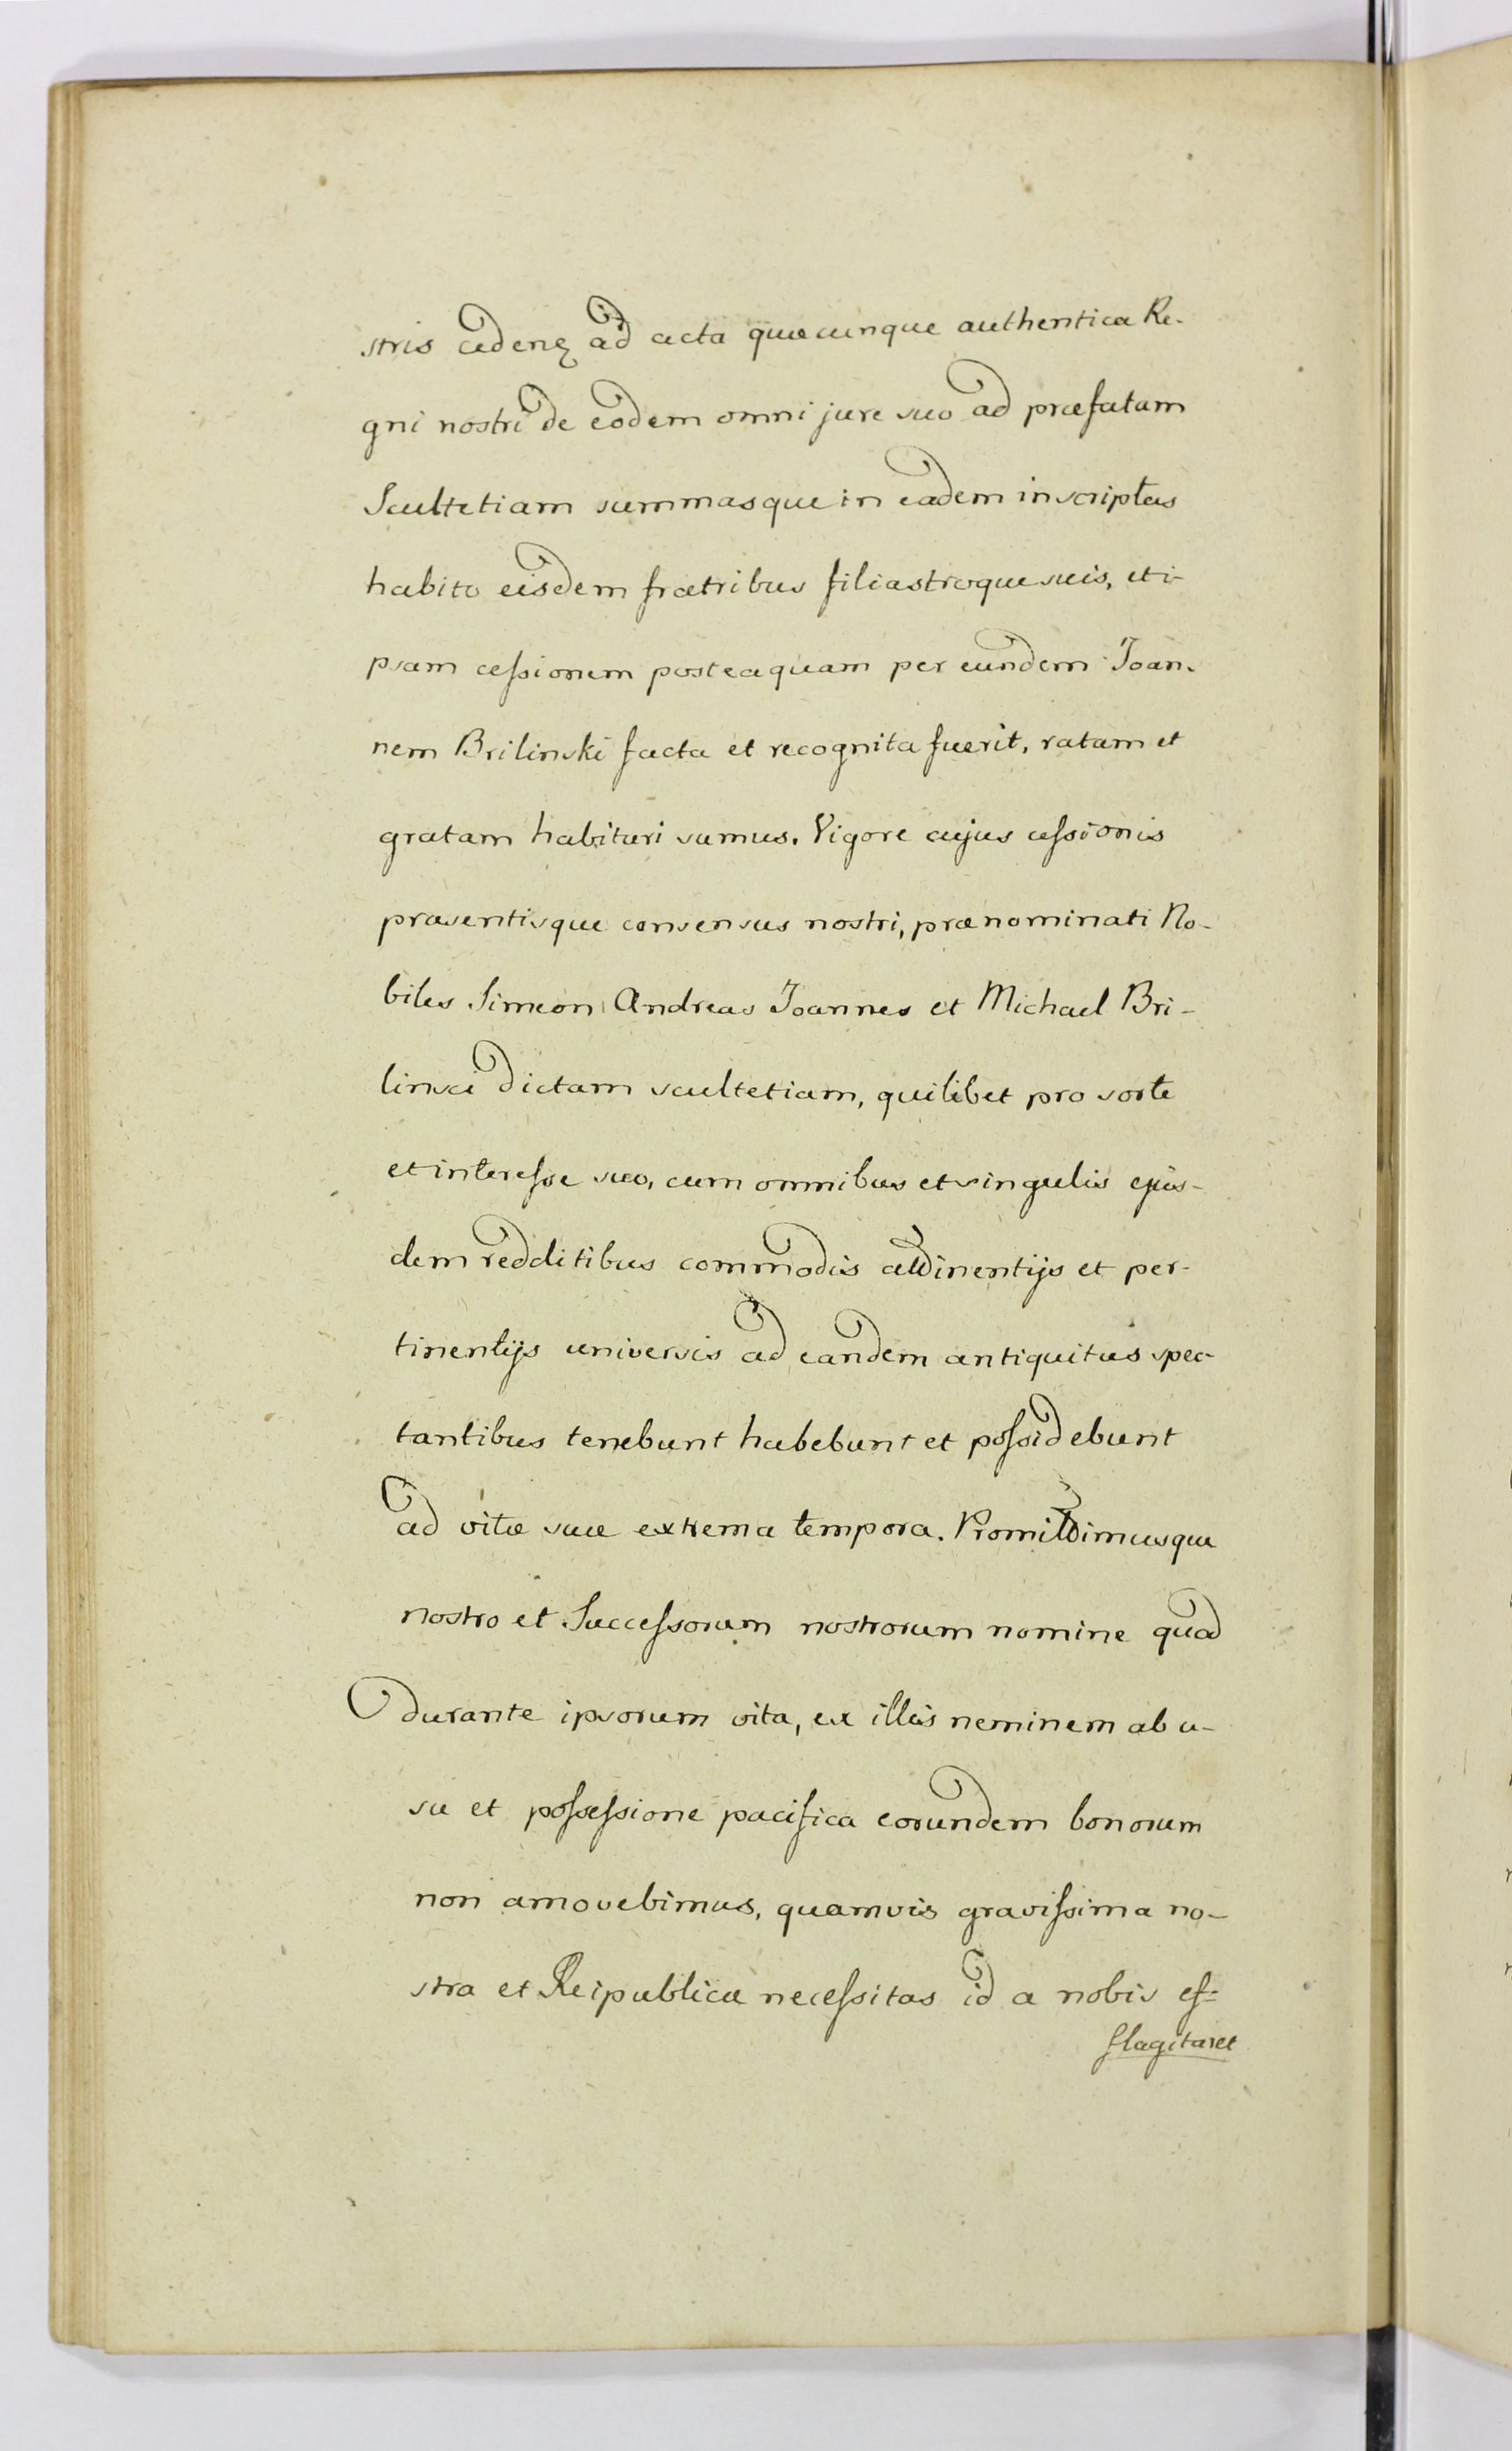 stris cedend ad acta quæcunque authentica Re-
gni nostri de eodem omni jure suo ad præfatam
Scultetiam summasque in eadem inscriptas
habito eisdem fratribus filiastroque suis, et i-
psam cessionem posteaquam per eundem Joan-
nem Brilinski facta et recognita fuerit, ratam et
gratam habituri sumus. Vigore cujus cessionis
præsentisque consensus nostri, prænominati No-
biles Simeon Andreas Joannes et Michael Bri-
linsci dictam scultetiam, quilibet pro sorte
et interesse suo, cum omnibus et singulis ejus-
dem redditibus commodis attinentijs et per-
tinentijs universis ad eandem antiquitus spec-
tantibus tenebunt habebunt et possidebunt
ad vitæ suæ extrema tempora. Promittimusque
nostro et Successorum nostrorum nomine quod
durante ipsorum vita, ex illis neminem ab u-
su et possessione pacifica eorundem bonorum
non amovebimus, quamvis gravissima no-
stra et Reipublicæ necessitas id a nobis ef-
flagitaret